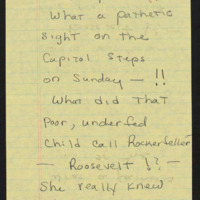 What a pathetic
sight on the
Capitol Steps
on Sunday — !!
What did that
poor, underfed
child call Rockerfeller
— Roosevelt !? —
She really knew